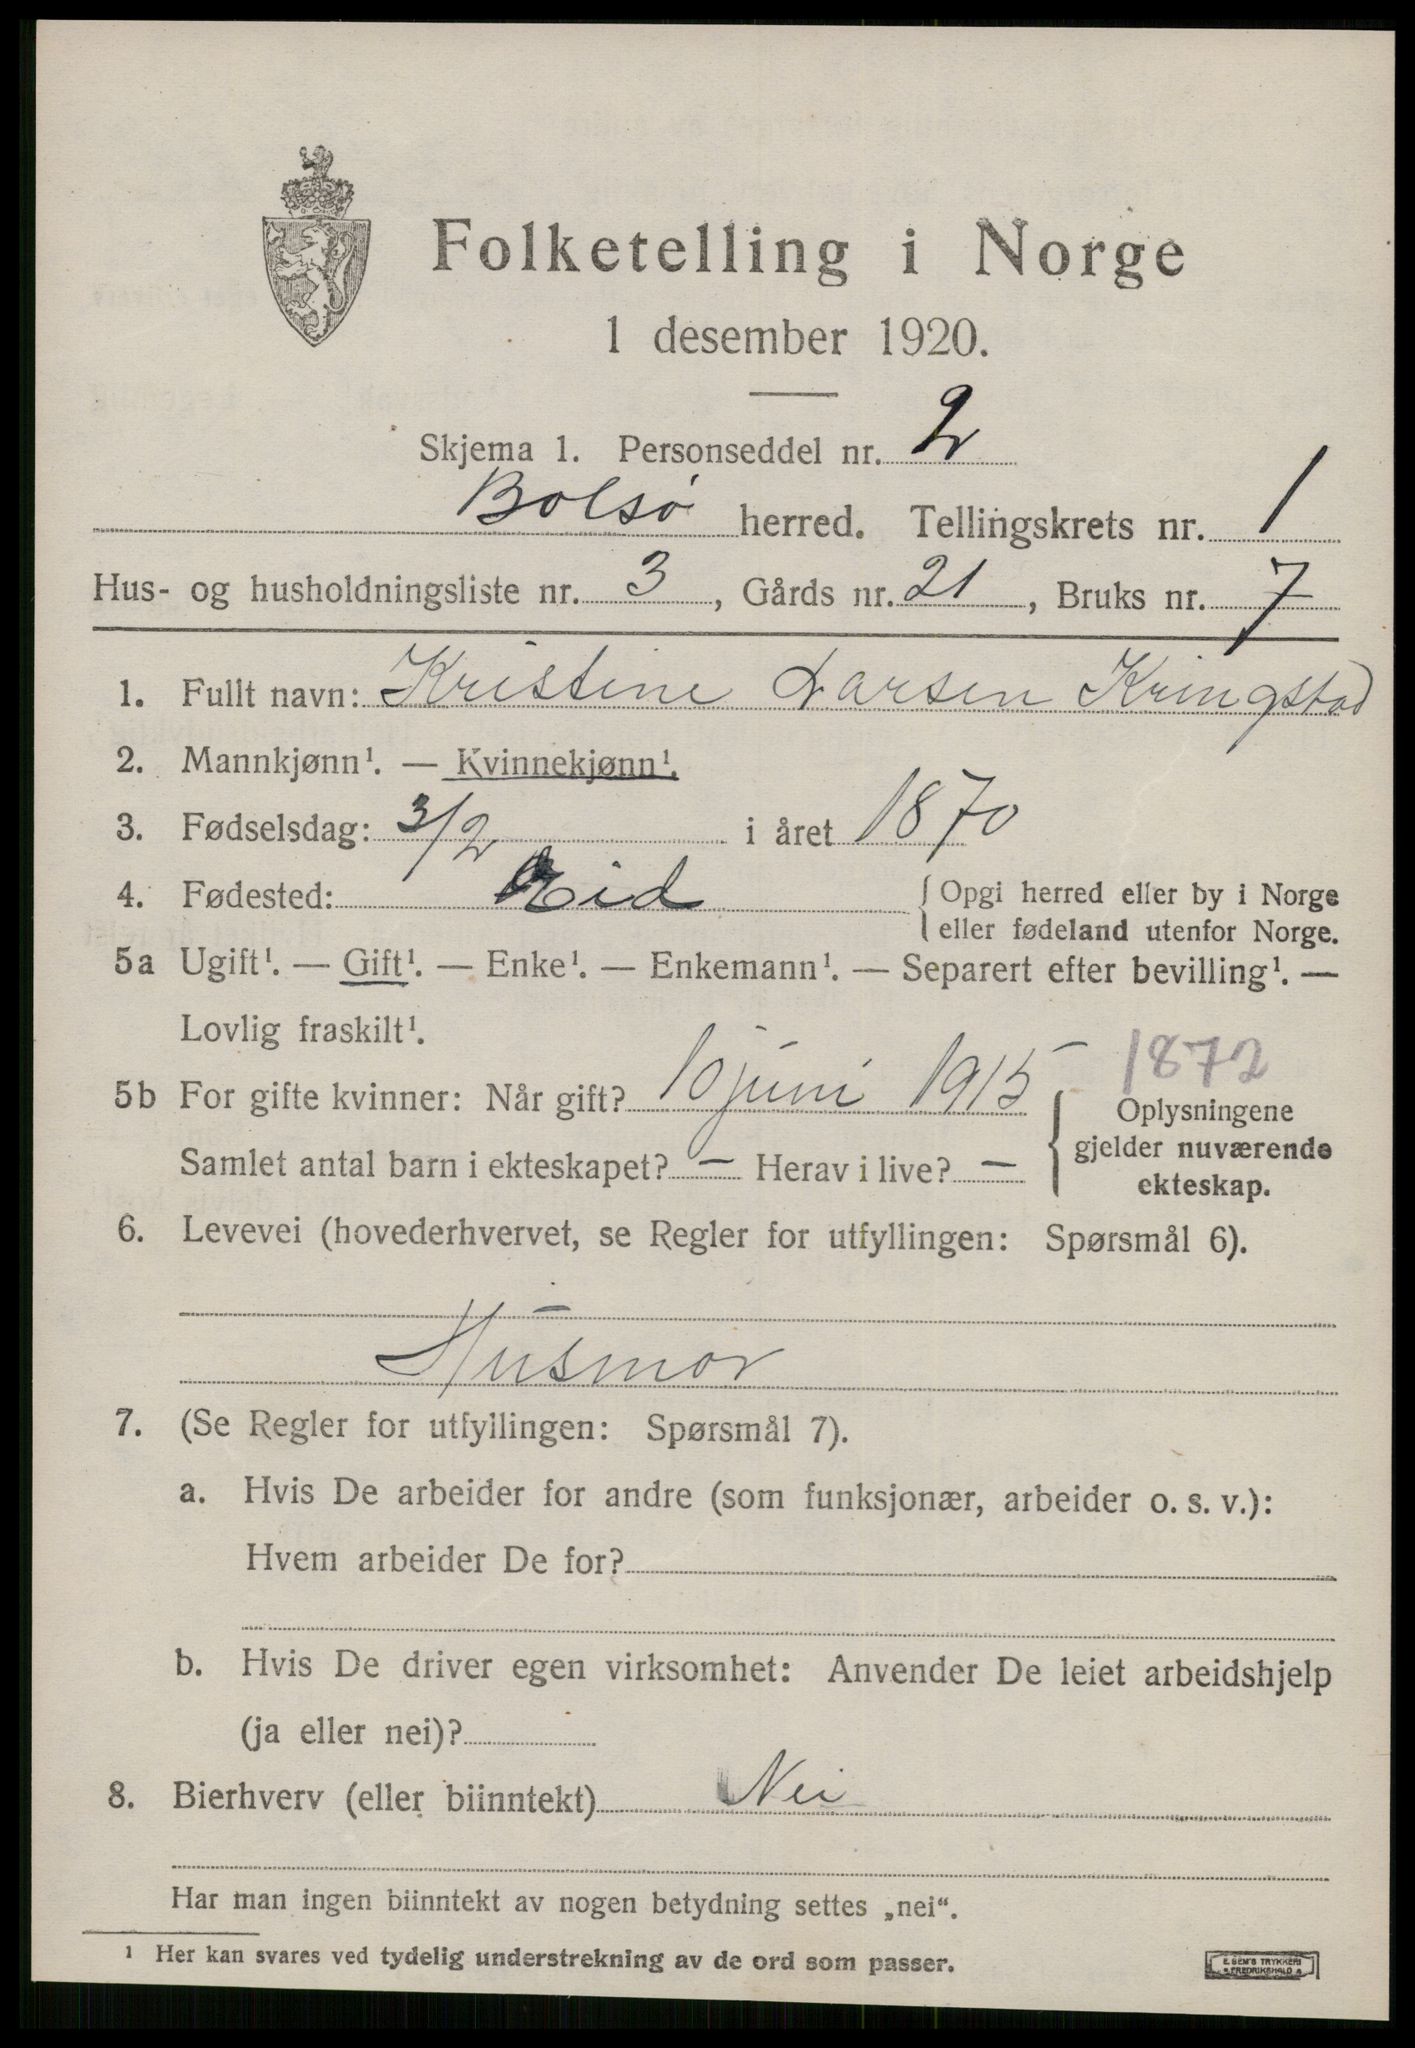 Folketelling i Norge
1 desember 1920.
Skjema 1. Personseddel nr. 2
Bolsø herred. Tellingskrets nr. 1
Hus- og husholdningsliste nr. 3, Gårds nr. 21, Bruks nr. 7
1. Fullt navn: Kristine Larsen Kringstad
2. Mannkjønn¹. — Kvinnekjønn¹.
3. Fødselsdag: 3/2 i året 1870
4. Fødested: Eid { Opgi herred eller by i Norge
eller fødeland utenfor Norge.
5a Ugift¹. — Gift¹. — Enke¹. — Enkemann¹. — Separert efter bevilling¹. —
Lovlig fraskilt¹.
1872
5b For gifte kvinner: Når gift? 10 juni 1915 { Oplysningene
gjelder nuværende
Samlet antal barn i ekteskapet? — Herav i live? —
ekteskap.
6. Levevei (hovederhvervet, se Regler for utfyllingen: Spørsmål 6).
Husmor
7. (Se Regler for utfyllingen: Spørsmål 7).
a. Hvis De arbeider for andre (som funksjonær, arbeider o. s. v.):
Hvem arbeider De for?
b. Hvis De driver egen virksomhet: Anvender De leiet arbeidshjelp
(ja eller nei)?
8. Bierhverv (eller biinntekt) Nei
Har man ingen biinntekt av nogen betydning settes „nei“.
¹ Her kan svares ved tydelig understrekning av de ord som passer.
E. SEM'S TRYKKERI
FREDRIKSHALD